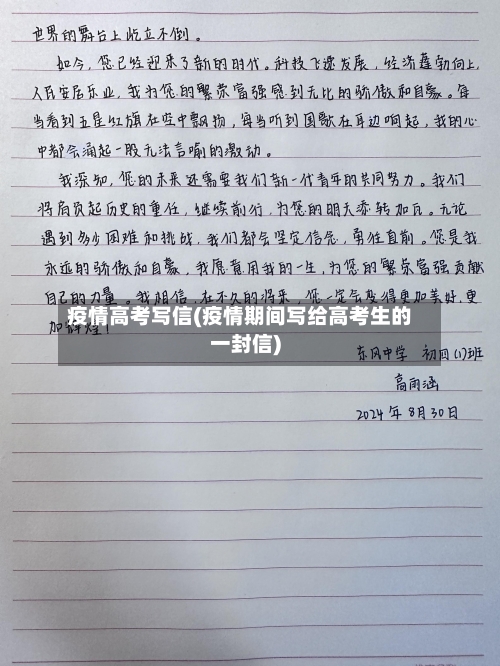 世界的舞台上屹立不倒。
如今，您已经迎来了新的时代。科技飞速发展，经济蓬勃向上，
人民安居乐业，我为您的繁荣富强感到无比的骄傲和自豪。每
当看到五星红旗在空中飘扬，每当听到国歌在耳边响起，我的心
中都会涌起一股无法言喻的激动。
我深知，您的未来还需要我们新一代青年的共同努力。我们
将肩负起历史的重任，继续前行，为您的明天添砖加瓦。无论
遇到多少困难和挑战，我们都会坚定信念，勇往直前。您是我
永远的骄傲和自豪，我愿意用我的一生，为您的繁荣富强贡献
自己的力量。我相信，在不久的将来，您一定会变得更加美好，更
加辉煌！
疫情高考写信(疫情期间写给高考生的
一封信)
东风中学 初四(1)班
高雨涵
2024年8月30日